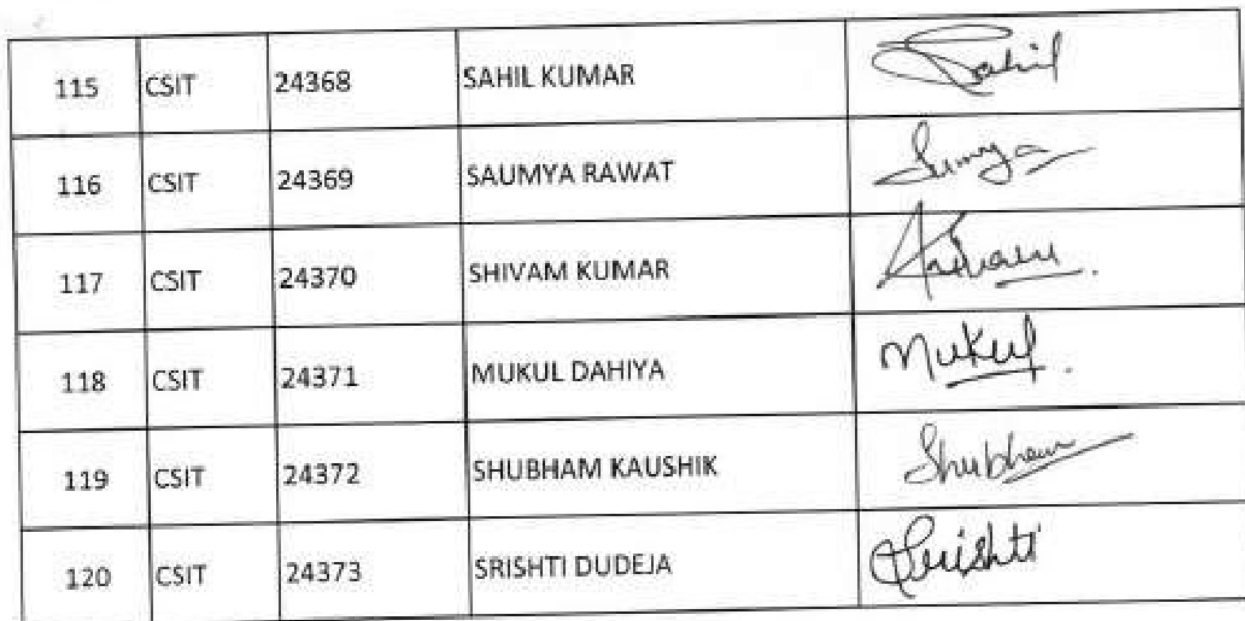 115 CSIT 24368 SAHIL KUMAR Sahil
116 CSIT 24369 SAUMYA RAWAT Sumya
117 CSIT 24370 SHIVAM KUMAR Shivam
118 CSIT 24371 MUKUL DAHIYA Mukul
119 CSIT 24372 SHUBHAM KAUSHIK Shubham
120 CSIT 24373 SRISHTI DUDEJA Srishti